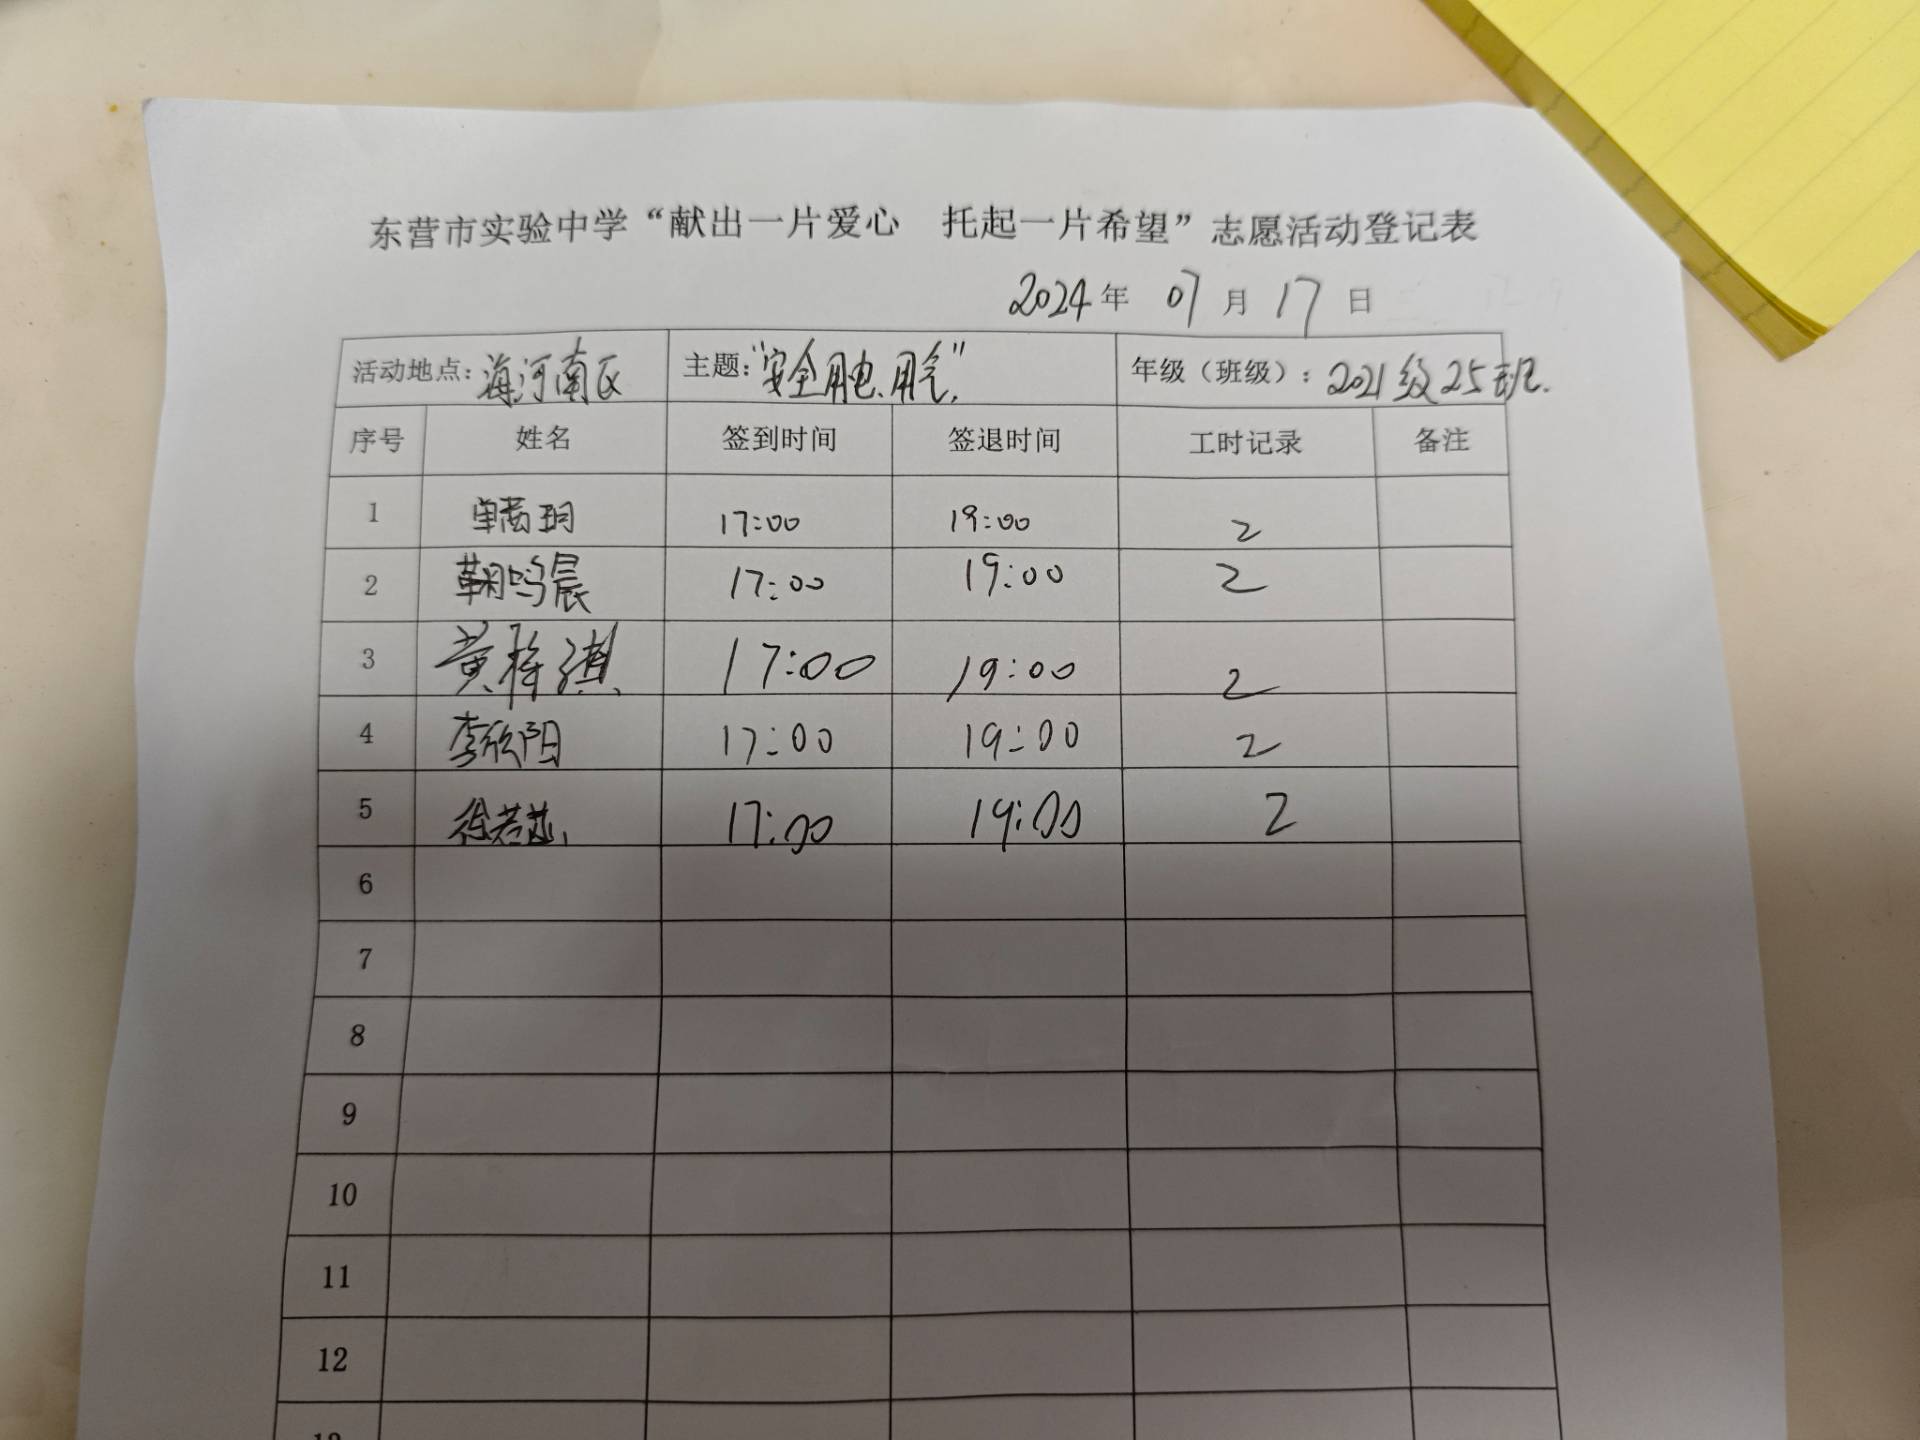 东营市实验中学“献出一片爱心 托起一片希望”志愿活动登记表
2024年 07月 17日
活动地点：海河南区 主题：“安全用电、用气” 年级（班级）：2021级25班.
序号 姓名 签到时间 签退时间 工时记录 备注
1 17:00 19:00 2
2 鞠鸣晨 17:00 19:00 2
3 黄梓淇 17:00 19:00 2
4 李欣阳 17:00 19:00 2
5 徐若 17:00 19:00 2
6
7
8
9
10
11
12